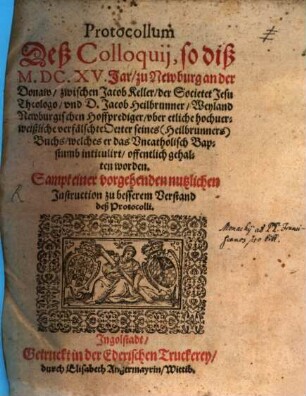 Protocollum
Deß Colloquij, so diß
M. DC. XV. Jar/ zu Newburg an der
Donaw/ zwischen Jacob Keller/ der Societet Jesu
Theologo/ vnd D. Jacob Heilbrunner/ Weyland
Newburgischen Hoffprediger/ vber etliche hochuer-
weißliche verfälschte Oerter seines (Heilbrunners)
Buchs/ welches er das Vncatholisch Bap-
stumb intitulirt/ offentlich gehal-
ten worden.
Sampt einer vorgehenden nutzlichen
Instruction zu besserem Verstand
deß Protocolli.
Monachij ad PP.
Ingolstatt/
Getruckt in der Ederischen Truckerey/
durch Elisabeth Angermayrin/ Wittib.